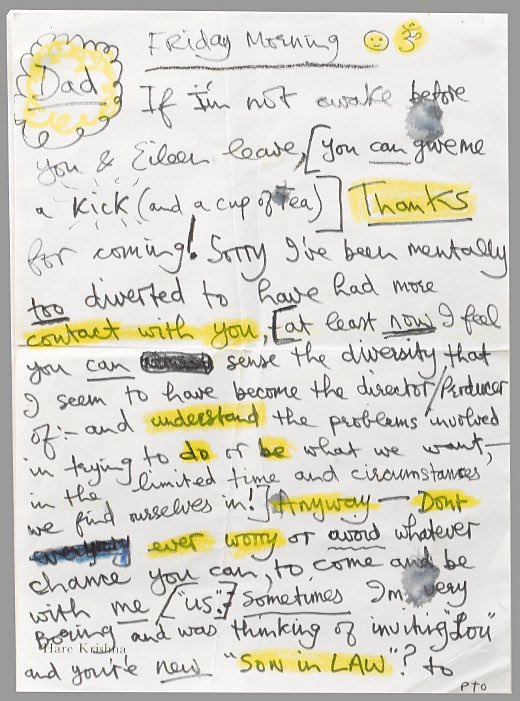 Friday Morning ॐ
Dad
If I'm not awake before
you & Eileen leave, [you can give me
a Kick (and a cup of Tea)] Thanks
for coming! Sorry I've been mentally
too diverted to have had more
contact with you, [at least now I feel
you can sense the diversity that
I seem to have become the director/Producer
of:- and understand the problems involved
in trying to do or be what we want,-
in the limited time and circumstances
we find ourselves in!] Anyway — Dont
ever worry or avoid whatever
chance you can, to come and be
with me ["us"!] Sometimes Im very
Boring and was thinking of inviting "Lou"
Hare Krishna
and you're new "Son in LAW"? to
PTO